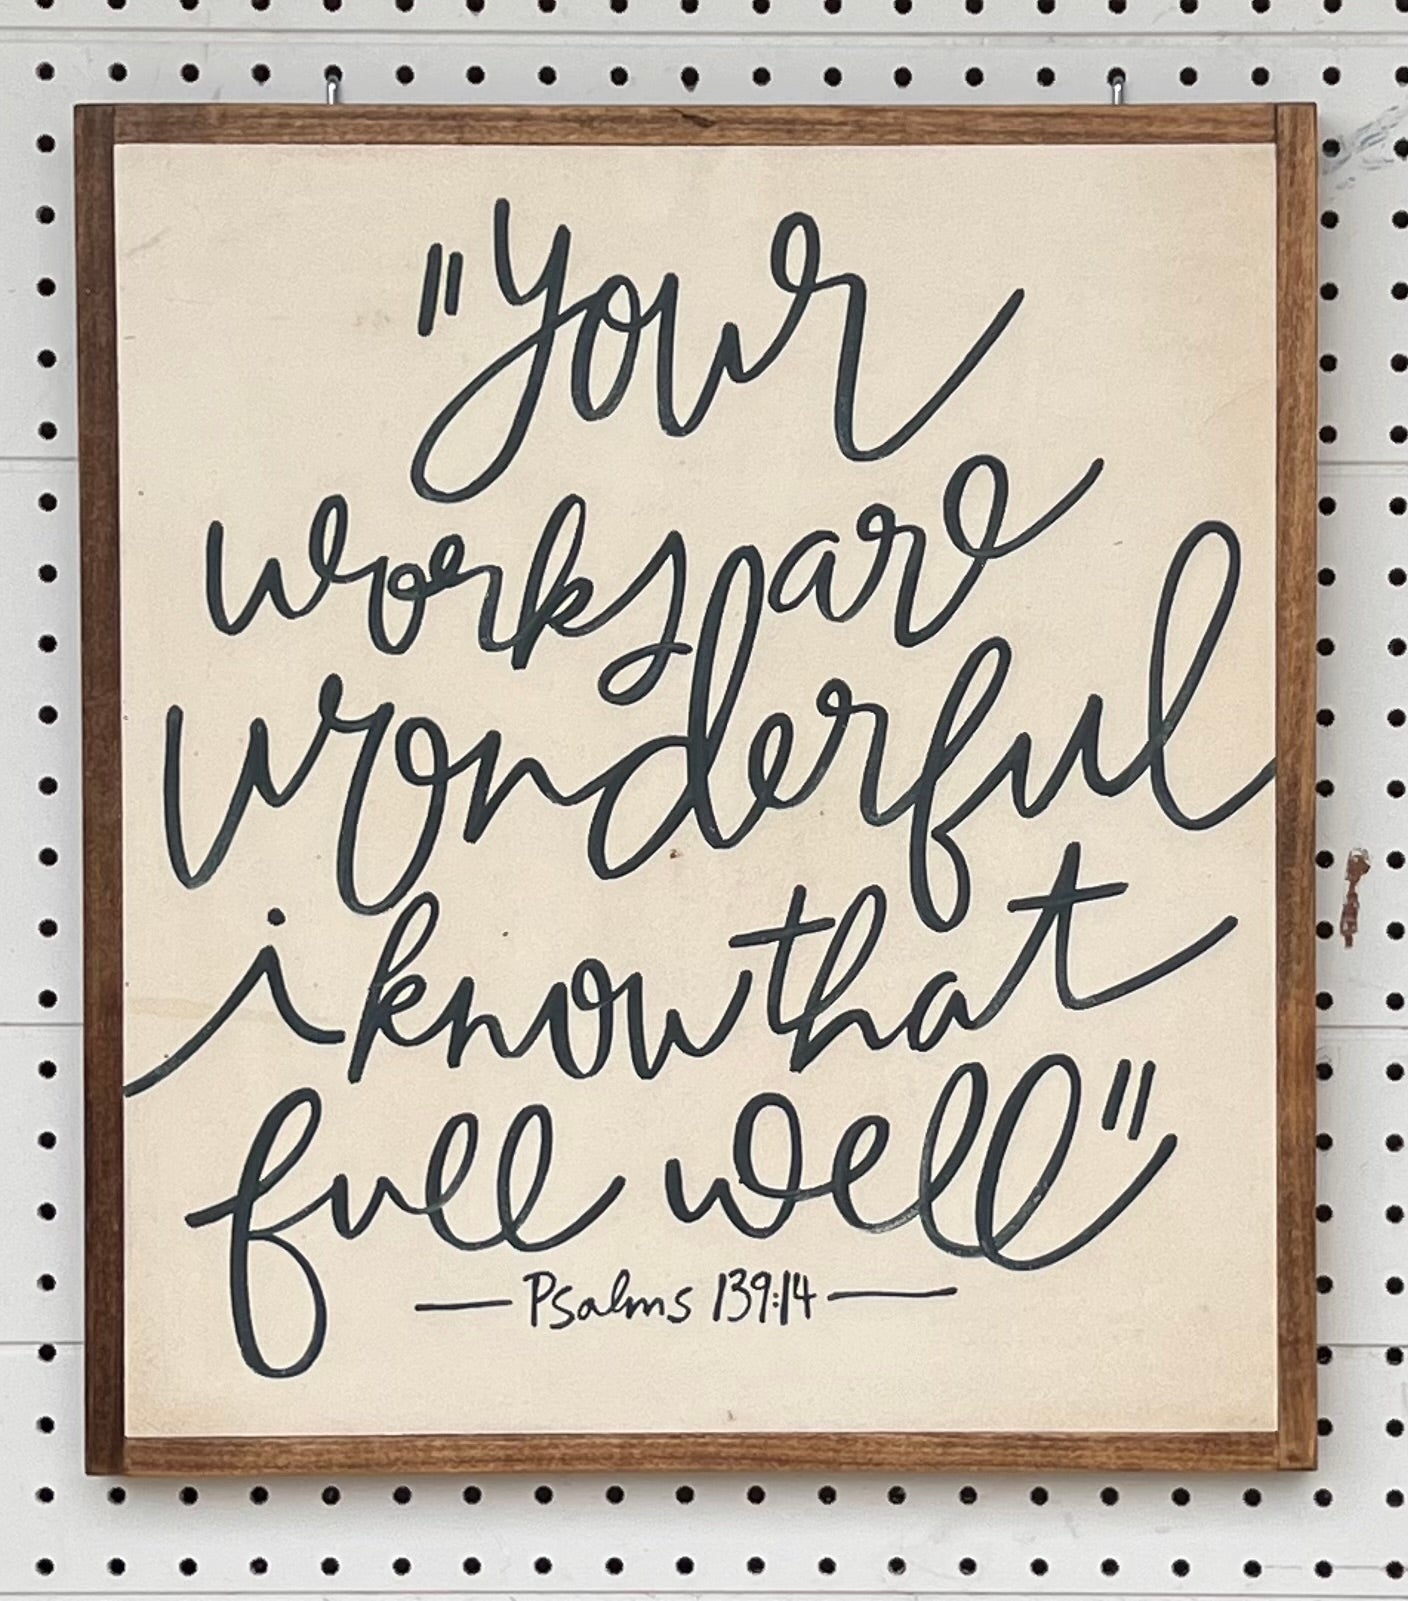 "Your
works are
wonderful
i know that
full well"
— Psalms 139:14 —